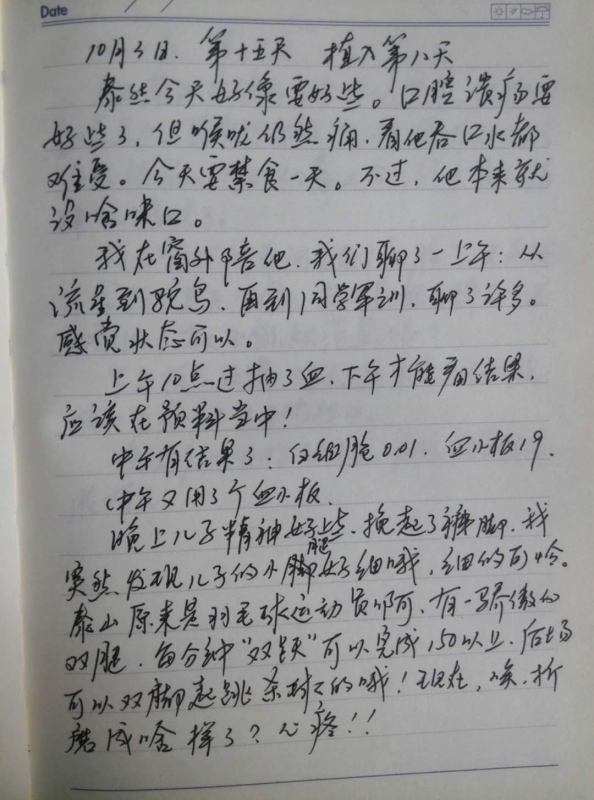 Date
10月3日. 第十五天 植入第八天
泰然今天好像要好些。口腔溃疡要
好些了,但喉咙仍然痛,看他吞口水都
难受。今天要禁食一天。不过,他本来就
没啥味口。
我在窗外陪他,我们聊了一上午:从
流星到鸵鸟,再到同学军训,聊了许多。
感觉状态可以。
上午10点过抽了血,下午才能看结果,
应该在预料当中!
中午有结果了:白细胞0.01. 血小板19.
中午又用了个血小板.
晚上儿子精神好些,挽起了裤脚,我
突然发现儿子的小腿好细哦,细的可怜。
泰山原来是羽毛球运动员啊,有一骄傲的
双腿,每分钟“双跳”可以完成150以上,后场
可以双脚起跳杀球的哦!现在,唉,折
磨成啥样了?心疼!!